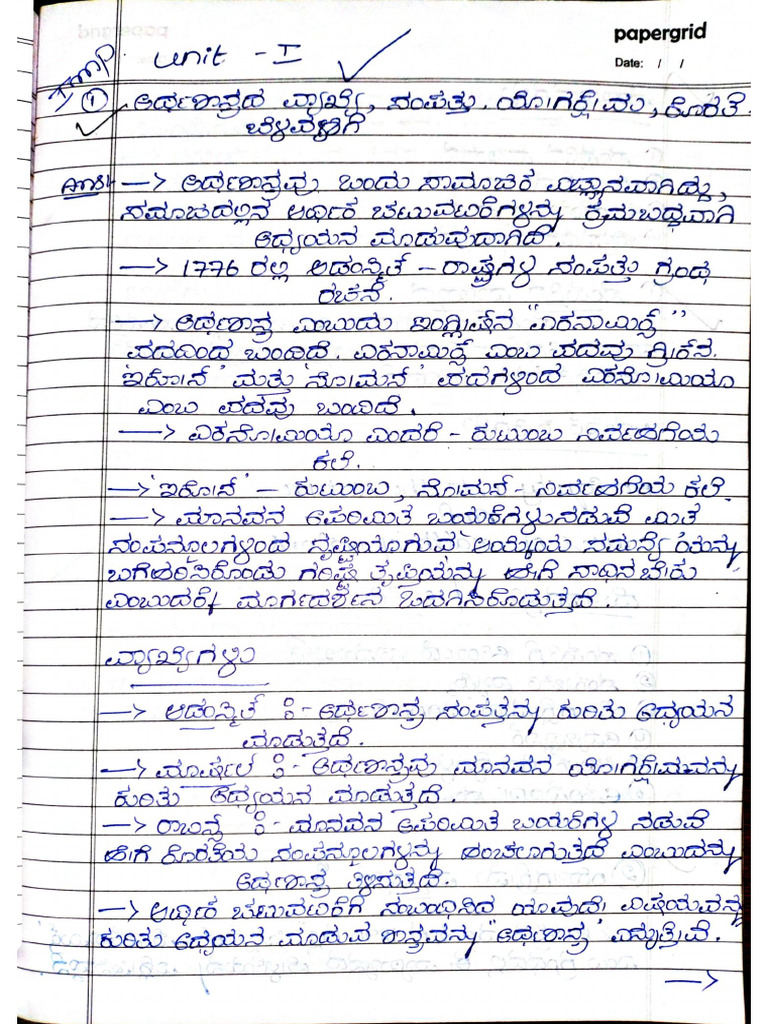 papergrid
Date: / /
Imp Unit - I
① ಅರ್ಥಶಾಸ್ತ್ರದ ವ್ಯಾಖ್ಯೆ, ಸಂಪತ್ತು, ಯೋಗಕ್ಷೇಮ, ಕೊರತೆ
ಬೆಳವಣಿಗೆ
Ans:- → ಅರ್ಥಶಾಸ್ತ್ರವು ಒಂದು ಸಾಮಾಜಿಕ ವಿಜ್ಞಾನವಾಗಿದ್ದು,
ಸಮಾಜದಲ್ಲಿನ ಆರ್ಥಿಕ ಚಟುವಟಿಕೆಗಳನ್ನು ಕ್ರಮಬದ್ಧವಾಗಿ
ಅಧ್ಯಯನ ಮಾಡುವುದಾಗಿದೆ.
→ 1776 ರಲ್ಲಿ ಆಡಂಸ್ಮಿತ್ - ರಾಷ್ಟ್ರಗಳ ಸಂಪತ್ತು ಗ್ರಂಥ
ರಚನೆ.
→ ಅರ್ಥಶಾಸ್ತ್ರ ಎಂಬುದು ಇಂಗ್ಲೀಷಿನ "ಎಕನಾಮಿಕ್ಸ್"
ಪದದಿಂದ ಬಂದಿದೆ. ಎಕನಾಮಿಕ್ಸ್ ಎಂಬ ಪದವು ಗ್ರೀಕಿನ
'ಇಕೋಸ್' ಮತ್ತು 'ನೋಮಸ್' ಪದಗಳಿಂದ ಎಕನೋಮಿಯಾ
ಎಂಬ ಪದವು ಬಂದಿದೆ.
→ ಎಕನೋಮಿಯಾ ಎಂದರೆ - ಕುಟುಂಬ ನಿರ್ವಹಣೆಯ
ಕಲೆ.
→ 'ಇಕೋಸ್' - ಕುಟುಂಬ, ನೋಮಸ್ - ನಿರ್ವಹಣೆಯ ಕಲೆ.
→ ಮಾನವನ ಅಪರಿಮಿತ ಬಯಕೆಗಳು ನಡುವೆ ಮಿತ
ಸಂಪನ್ಮೂಲಗಳಿಂದ ಸೃಷ್ಟಿಯಾಗುವ ಆಯ್ಕೆಯ ಸಮಸ್ಯೆಯನ್ನು
ಬಗೆಹರಿಸಿಕೊಂಡು ಗರಿಷ್ಟ ತೃಪ್ತಿಯನ್ನು ಹೇಗೆ ಸಾಧಿಸಬೇಕು
ಎಂಬುದರಕ್ಕೆ ಮಾರ್ಗದರ್ಶನ ಒದಗಿಸಿಕೊಡುತ್ತದೆ.
ವ್ಯಾಖ್ಯೆಗಳು
→ ಆಡಂಸ್ಮಿತ್ :- ಅರ್ಥಶಾಸ್ತ್ರ ಸಂಪತ್ತನ್ನು ಕುರಿತು ಅಧ್ಯಯನ
ಮಾಡುತ್ತದೆ.
→ ಮಾರ್ಷಲ್ :- ಅರ್ಥಶಾಸ್ತ್ರವು ಮಾನವನ ಯೋಗಕ್ಷೇಮವನ್ನು
ಕುರಿತು ಅಧ್ಯಯನ ಮಾಡುತ್ತದೆ.
→ ರಾಬಿನ್ಸ್ :- ಮಾನವನ ಅಪರಿಮಿತ ಬಯಕೆಗಳ ನಡುವೆ
ಹೇಗೆ ಕೊರತೆಯ ಸಂಪನ್ಮೂಲಗಳನ್ನು ಹಂಚಲಾಗುತ್ತದೆ ಎಂಬುದನ್ನು
ಅರ್ಥಶಾಸ್ತ್ರ ತಿಳಿಸುತ್ತದೆ.
→ ಆರ್ಥಿಕ ಚಟುವಟಿಕೆಗೆ ಸಂಬಂಧಿಸಿದ ಯಾವುದೇ ವಿಷಯವನ್ನು
ಕುರಿತು ಅಧ್ಯಯನ ಮಾಡುವ ಶಾಸ್ತ್ರವನ್ನು "ಅರ್ಥಶಾಸ್ತ್ರ" ಎನ್ನುತ್ತೇವೆ.
→